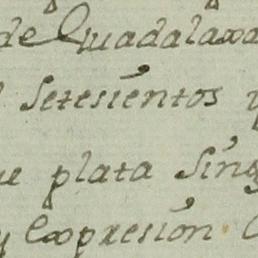 de Guadalaxa
setesientos
plata sing
y Expresion